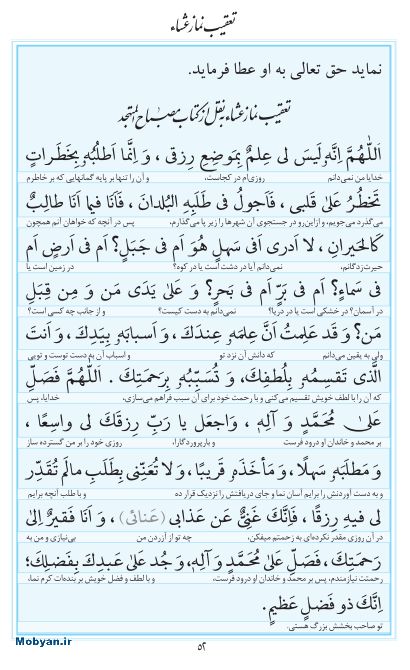 تعقیب نماز عشاء
نماید حق تعالی به او عطا فرماید.
تعقیب نماز عشاء به نقل از کتاب مصباح المتهجد
اَللّٰهُمَّ اِنَّهُ لَیْسَ لی عِلْمٌ بِمَوْضِعِ رِزْقی ، وَ اِنَّما اَطْلُبُهُ بِخَطَراتٍ
خدایا من نمی‌دانم روزی‌ام در کجاست، و آن را تنها بر پایه گمانهایی که بر خاطرم
تَخْطُرُ عَلیٰ قَلْبی ، فَاَجُولُ فی طَلَبِهِ الْبُلْدانَ ، فَاَنَا فیما اَنَا طالِبٌ
می‌گذرد می‌جویم، و ازاین‌رو در جستجوی آن شهرها را زیر پا می‌گذارم، پس در آنچه که خواهان آنم همچون
کَالْحَیْرانِ ، لا اَدْری اَفی سَهْلٍ هُوَ اَمْ فی جَبَلٍ؟ اَمْ فی اَرْضٍ اَمْ
حیرت‌زدگانم، نمی‌دانم آیا در دشت است یا در کوه؟ در زمین است یا
فی سَماءٍ؟ اَمْ فی بَرٍّ اَمْ فی بَحْرٍ؟ وَ عَلیٰ یَدَیْ مَنْ وَ مِنْ قِبَلِ
در آسمان؟ در خشکی است یا در دریا؟ نمی‌دانم به دست کیست؟ و از جانب چه کسی است؟
مَنْ؟ وَ قَدْ عَلِمْتُ اَنَّ عِلْمَهُ عِنْدَکَ ، وَ اَسْبابَهُ بِیَدِکَ ، وَ اَنْتَ
ولی به یقین می‌دانم که دانش آن نزد تو و اسباب آن به دست توست و تویی
الَّذی تَقْسِمُهُ بِلُطْفِکَ، وَ تُسَبِّبُهُ بِرَحْمَتِکَ . اَللّٰهُمَّ فَصَلِّ
که آن را با لطف خویش تقسیم می‌کنی و با رحمت خود برای آن سبب فراهم می‌سازی، خدایا، پس
عَلیٰ مُحَمَّدٍ وَ آلِهِ ، وَاجْعَلْ یا رَبِّ رِزْقَکَ لی واسِعًا ،
بر محمد و خاندان او درود فرست و بارپروردگارا، روزی خود را بر من گسترده ساز
وَ مَطْلَبَهُ سَهْلًا، وَ مَأْخَذَهُ قَریبًا، وَ لا تُعَنِّنی بِطَلَبِ مالَمْ تُقَدِّرْ
و به دست آوردنش را برایم آسان نما و جای دریافتش را نزدیک قرار ده و با طلب آنچه برایم
لی فیهِ رِزْقًا، فَاِنَّکَ غَنِیٌّ عَنْ عَذابی (عَنائی) ، وَ اَنَا فَقیرٌ اِلیٰ
در آن روزی مقدر نکرده‌ای به زحمتم میفکن، چه تو از آزردن من بی‌نیازی و من به
رَحْمَتِکَ، فَصَلِّ عَلیٰ مُحَمَّدٍ وَ آلِهِ، وَ جُدْ عَلیٰ عَبْدِکَ بِفَضْلِکَ؛
رحمتت نیازمندم، پس بر محمد و خاندان او درود فرست، و با لطف و فضل خویش بر بنده‌ات کرم نما،
اِنَّکَ ذُو فَضْلٍ عَظیمٍ.
تو صاحب بخشش بزرگ هستی.
Mobyan.ir
۵۲